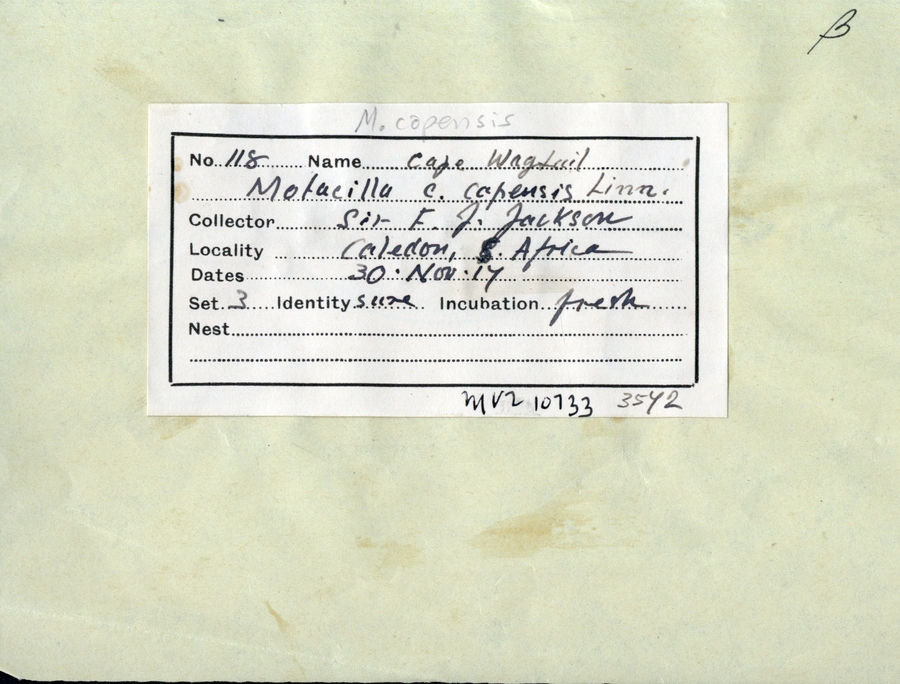 β
M. capensis
No. 118 Name Cape Wagtail
Motacilla c. capensis Linn.
Collector Sir F. J. Jackson
Locality Caledon, S. Africa
Dates 30. Nov. 17
Set 3 Identity sure Incubation fresh
Nest
MVZ 10733 3542